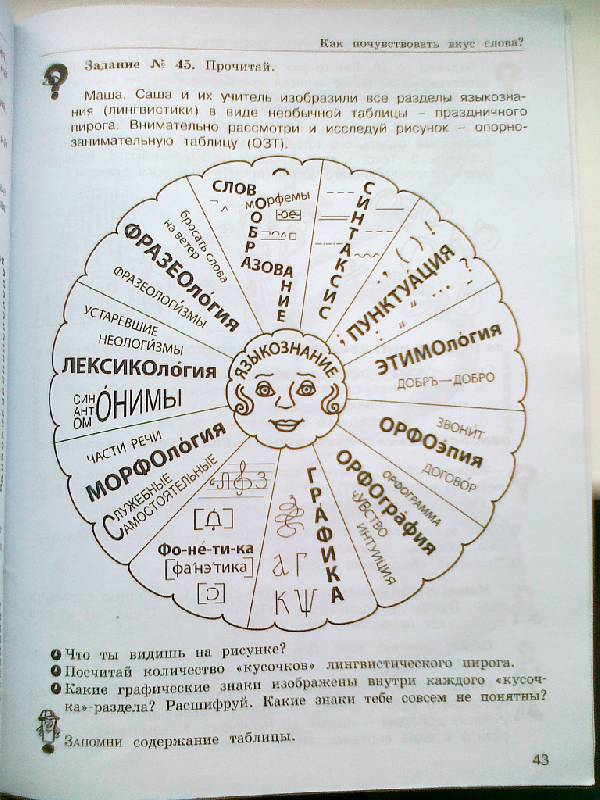 Как почувствовать вкус слова?
Задание № 45. Прочитай.
Маша, Саша и их учитель изобразили все разделы языкозна-
ния (лингвистики) в виде необычной таблицы – праздничного
пирога. Внимательно рассмотри и исследуй рисунок – опорно-
занимательную таблицу (ОЗТ).
СЛОВООБРАЗОВАНИЕ
морфемы
ое
СИНТАКСИС
., ( ) !
ПУНКТУАЦИЯ
ЭТИМОлóгия
ДОБРЪ—ДОБРО
ОРФОэ́пия
ЗВОНИ́Т
ДОГОВО́Р
ОРФОгрáфия
ОРФОГРАММА
ЧУВСТВО
ИНТУИЦИЯ
ГРА́ФИКА
а Г
К Ψ
Фо-не́-ти-ка
[фан'э́тика]
МОРФОлóгия
ЧАСТИ РЕЧИ
СЛУЖЕБНЫЕ
САМОСТОЯТЕЛЬНЫЕ
ЛЕКСИКОлóгия
УСТАРЕВШИЕ
НЕОЛОГИ́ЗМЫ
СИН
АНТ
ОМ
О́НИМЫ
ФРАЗЕОлóгия
бросать слова
на ветер
ФРАЗЕОЛОГИ́ЗМЫ
ЯЗЫКОЗНАНИЕ
Что ты видишь на рисунке?
Посчитай количество «кусочков» лингвистического пирога.
Какие графические знаки изображены внутри каждого «кусоч-
ка»-раздела? Расшифруй. Какие знаки тебе совсем не понятны?
Запомни содержание таблицы.
43